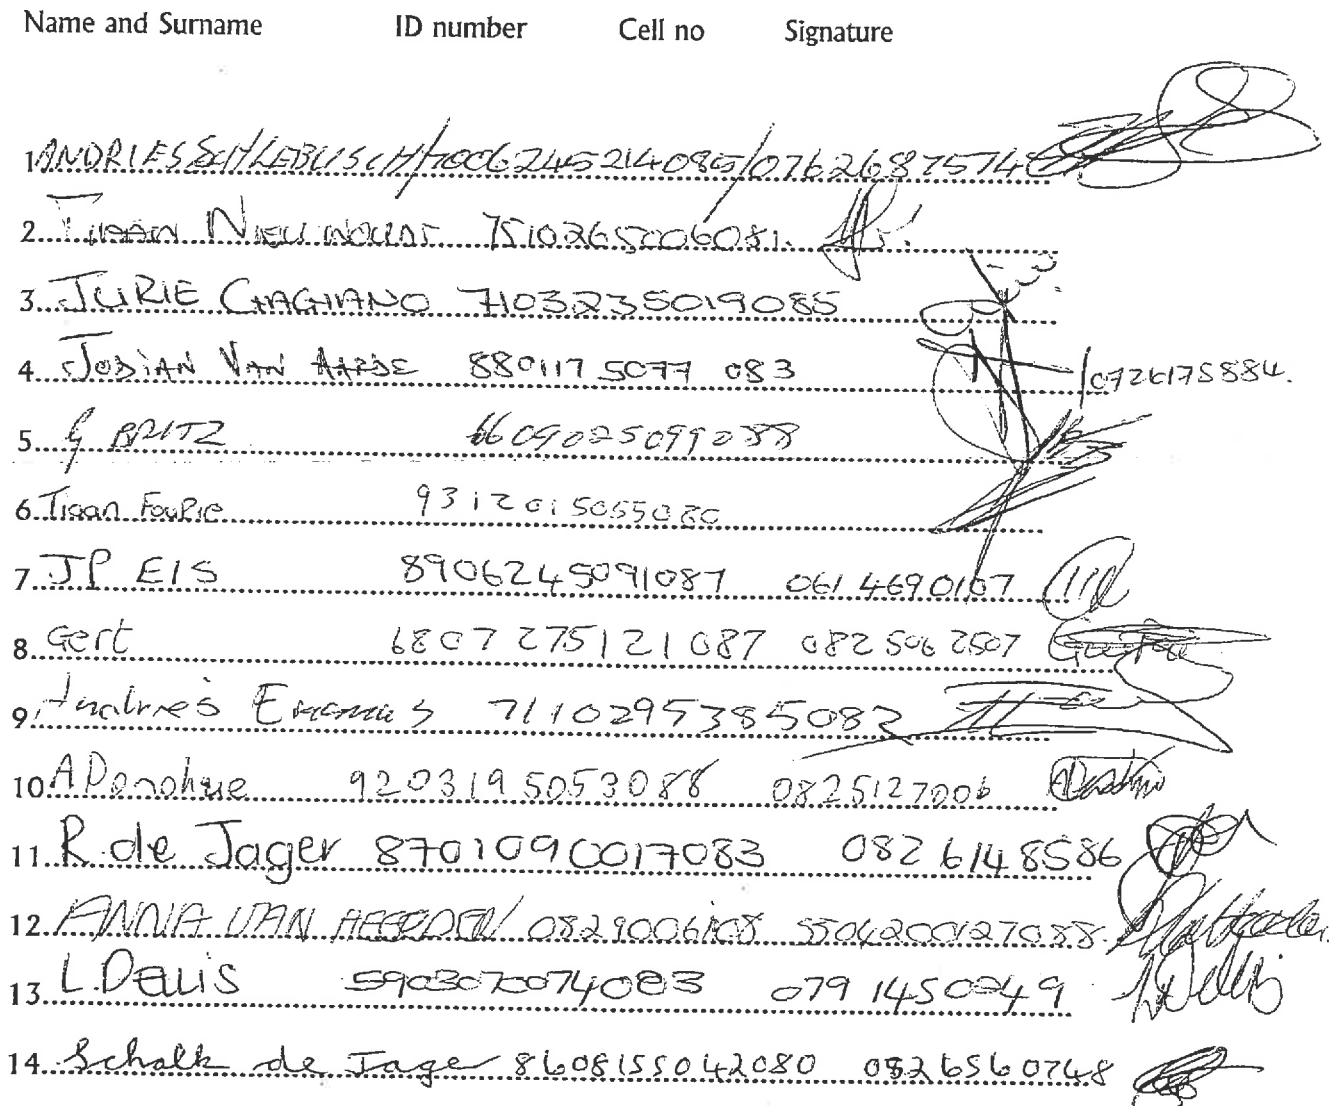 Name and Surname ID number Cell no Signature
1 ANDRIES SCHLEBUSCH/7006245214085/0762687574
2 7510265006081
3 JURIE 7103235019085
4 JODIAN VAN AARDE 880117 5077 083 /0726175884.
5 G BRITZ 6609025099088
6 Tiaan FouRie 9312015055080
7 JP EIS 8906245091087 061 4690167
8 Gert 6807275121087 082 506 2507
9 Andries 7110295385082
10 A Donohue 9203195053088 0825127006
11 R. de Jager 8701090017083 082 6148586
12 ANNA VAN HEERDEN 5504200127088
13 L. 5903070074083 079 1450249
14 Schalk de Jager 8608155042080 0826560748